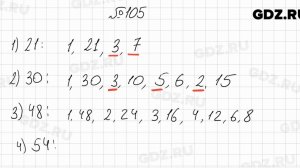 GDZ.RU
№105
1) 21: 1, 21, 3, 7
2) 30: 1, 30, 3, 10, 5, 6, 2, 15
3) 48: 1.48, 2, 24, 3,16, 4,12,6,8
4) 54:
GDZ.RU